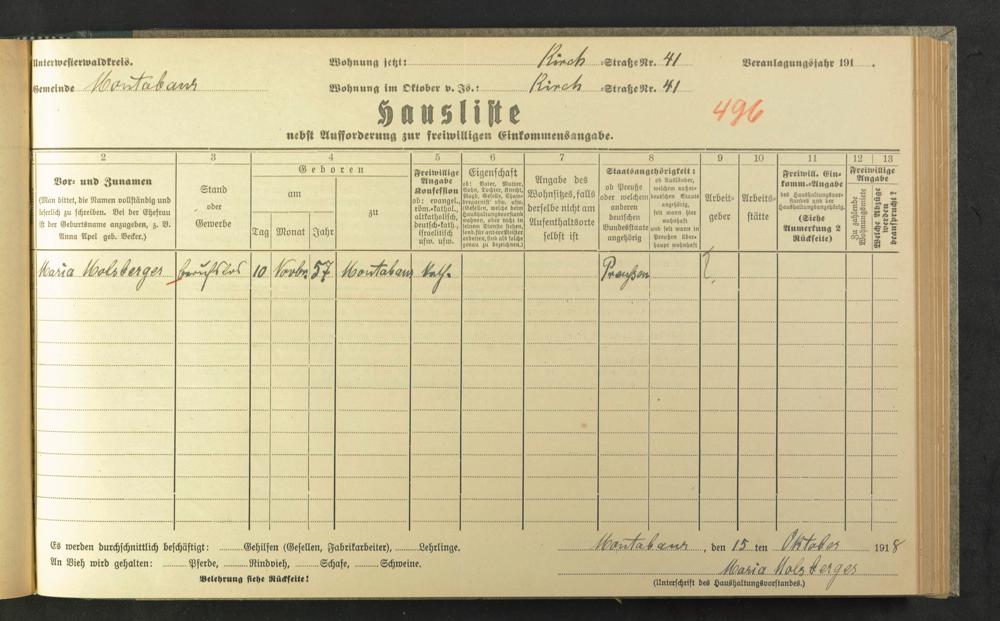 Unterwesterwaldkreis.
Gemeinde Montabaur
Wohnung jetzt: Kirch Straße Nr. 41
Wohnung im Oktober v. Js.: Kirch Straße Nr. 41
Veranlagungsjahr 191 .
Hausliste
496
nebst Aufforderung zur freiwilligen Einkommensangabe.
2 3 4 5 6 7 8 9 10 11 12 13
Vor- und Zunamen
(Man bittet, die Namen vollständig und
leserlich zu schreiben. Bei der Ehefrau
ist der Geburtsname anzugeben, z. B.
Anna Apel geb. Becker.)
Stand
oder
Gewerbe
Geboren
am
Tag Monat Jahr
zu
Freiwillige
Angabe
Konfession
ob: evangel.,
röm.-kathol.,
altkatholisch,
deutsch-kath.,
israelitisch
usw. usw.
Eigenschaft
ob: Vater, Mutter,
Sohn, Tochter, Knecht,
Magd, Geselle, Cham-
bregarnist usw.
(Gesellen, welche beim
Haushaltungsvorstand
wohnen, aber nicht in
seinem Dienste stehen,
sond. für and. ren Meister
arbeiten, sind als solche
genau zu bezeichnen.)
Angabe des
Wohnsitzes, falls
derselbe nicht am
Aufenthaltsorte
selbst ist
Staatsangehörigkeit:
ob Preuße
oder welchem
anderen
deutschen
Bundesstaate
angehörig
ob Ausländer,
welchem außer-
deutschen Staate
angehörig,
seit wann hier
wohnhaft
und seit wann in
Preußen über-
haupt wohnhaft
Arbeit-
geber
Arbeits-
stätte
Freiwill. Ein-
komm.-Angabe
des Haushaltungsvor-
standes und der
Haushaltungsangehörig.
(Siehe
Anmerkung 2
Rückseite)
Freiwillige
Angabe
Zu zahlende
Wohnungsmiete
Welche Abzüge
werden
beansprucht?
Maria Molsberger berufslos 10 Novbr. 57 Montabaur kath. Preußen
Es werden durchschnittlich beschäftigt: Gehilfen (Gesellen, Fabrikarbeiter), Lehrlinge.
An Vieh wird gehalten: Pferde, Rindvieh, Schafe, Schweine.
Belehrung siehe Rückseite!
Montabaur, den 15 ten Oktober 1918
Maria Molsberger
(Unterschrift des Haushaltungsvorstandes.)